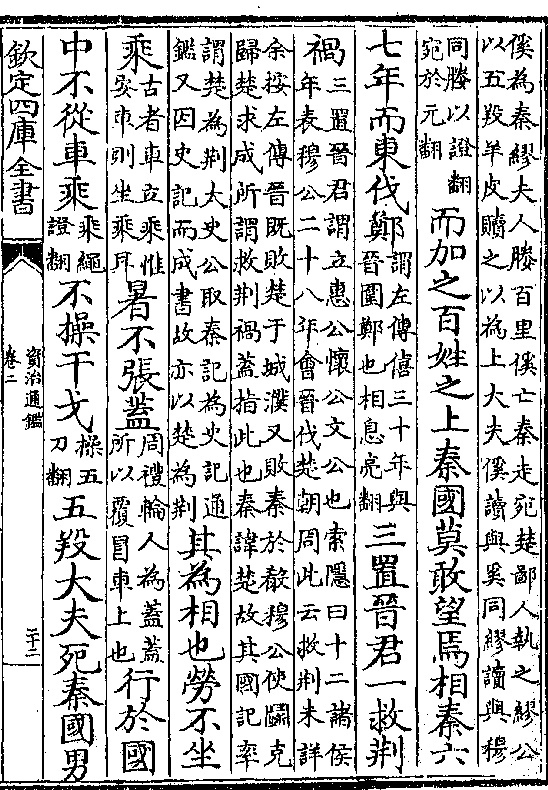 傒為秦繆夫人媵百里傒亡秦走宛楚鄙人執之繆公
以五羖羊皮贖之以為上大夫傒讀與奚同繆讀與穆
同媵以證翻
宛於元翻
而加之百姓之上秦國莫敢望焉相秦六
七年而東伐鄭
謂左傳僖三十年與
晉圍鄭也相息亮翻
三置晉君一救荆
禍
三置晉君謂立惠公懷公文公也索隱曰十二諸侯
年表穆公二十八年會晉伐楚朝周此云救荆未詳
余按左傳晉既敗楚于城濮又敗秦於殽穆公使鬬克
歸楚求成所謂救荆禍蓋指此也秦諱楚故其國記率
謂楚為荆太史公取秦記為史記通
鑑又因史記而成書故亦以楚為荆
其為相也勞不坐
乘
古者車立乘惟
安車則坐乘耳
暑不張蓋
周禮輪人為蓋蓋
所以覆冒車上也
行於國
中不從車乘
乘繩
證翻
不操干戈
操五
刀翻
五羖大夫死秦國男
欽定四庫全書
資治通鑑
卷二
二十三